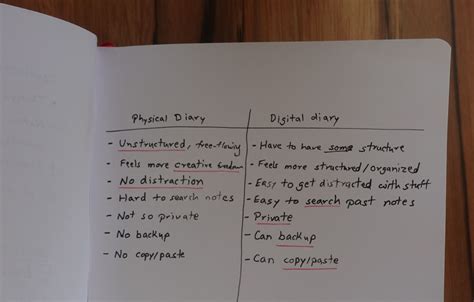 Physical Diary
Digital diary
- Unstructured, free-flowing
- Have to have some structure
- Feels more creative freedom
- Feels more structured/organized
- No distraction
- Easy to get distracted with stuff
- Hard to search notes
- Easy to search past notes
- Not so private
- Private
- No backup
- Can backup
- No copy/paste
- Can copy/paste